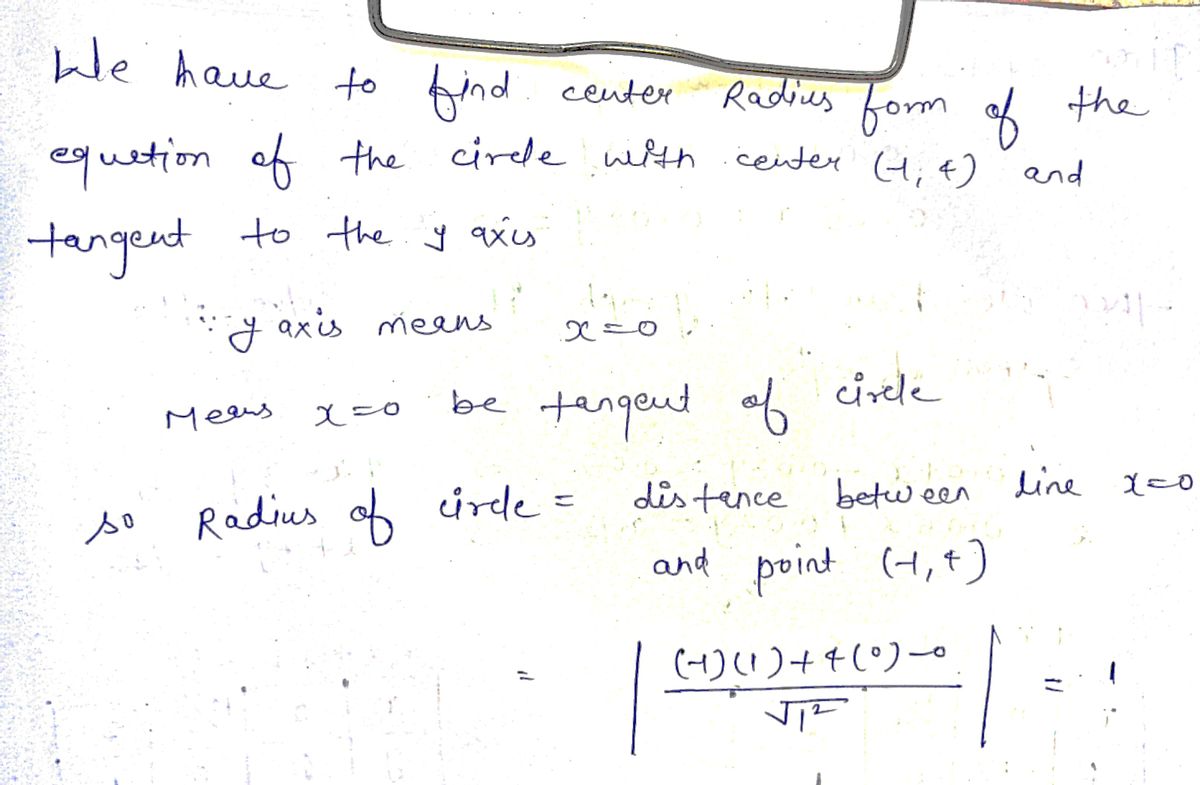 We have to find center Radius form of the
equetion of the circle with center (-1, 4) and
tangent to the y axis
∵ y axis means x=0
Means x=0 be tangent of circle
so Radius of circle = distance between line x=0
and point (-1, 4)
= | (-1)(1)+4(0)-0 / √1² | = 1